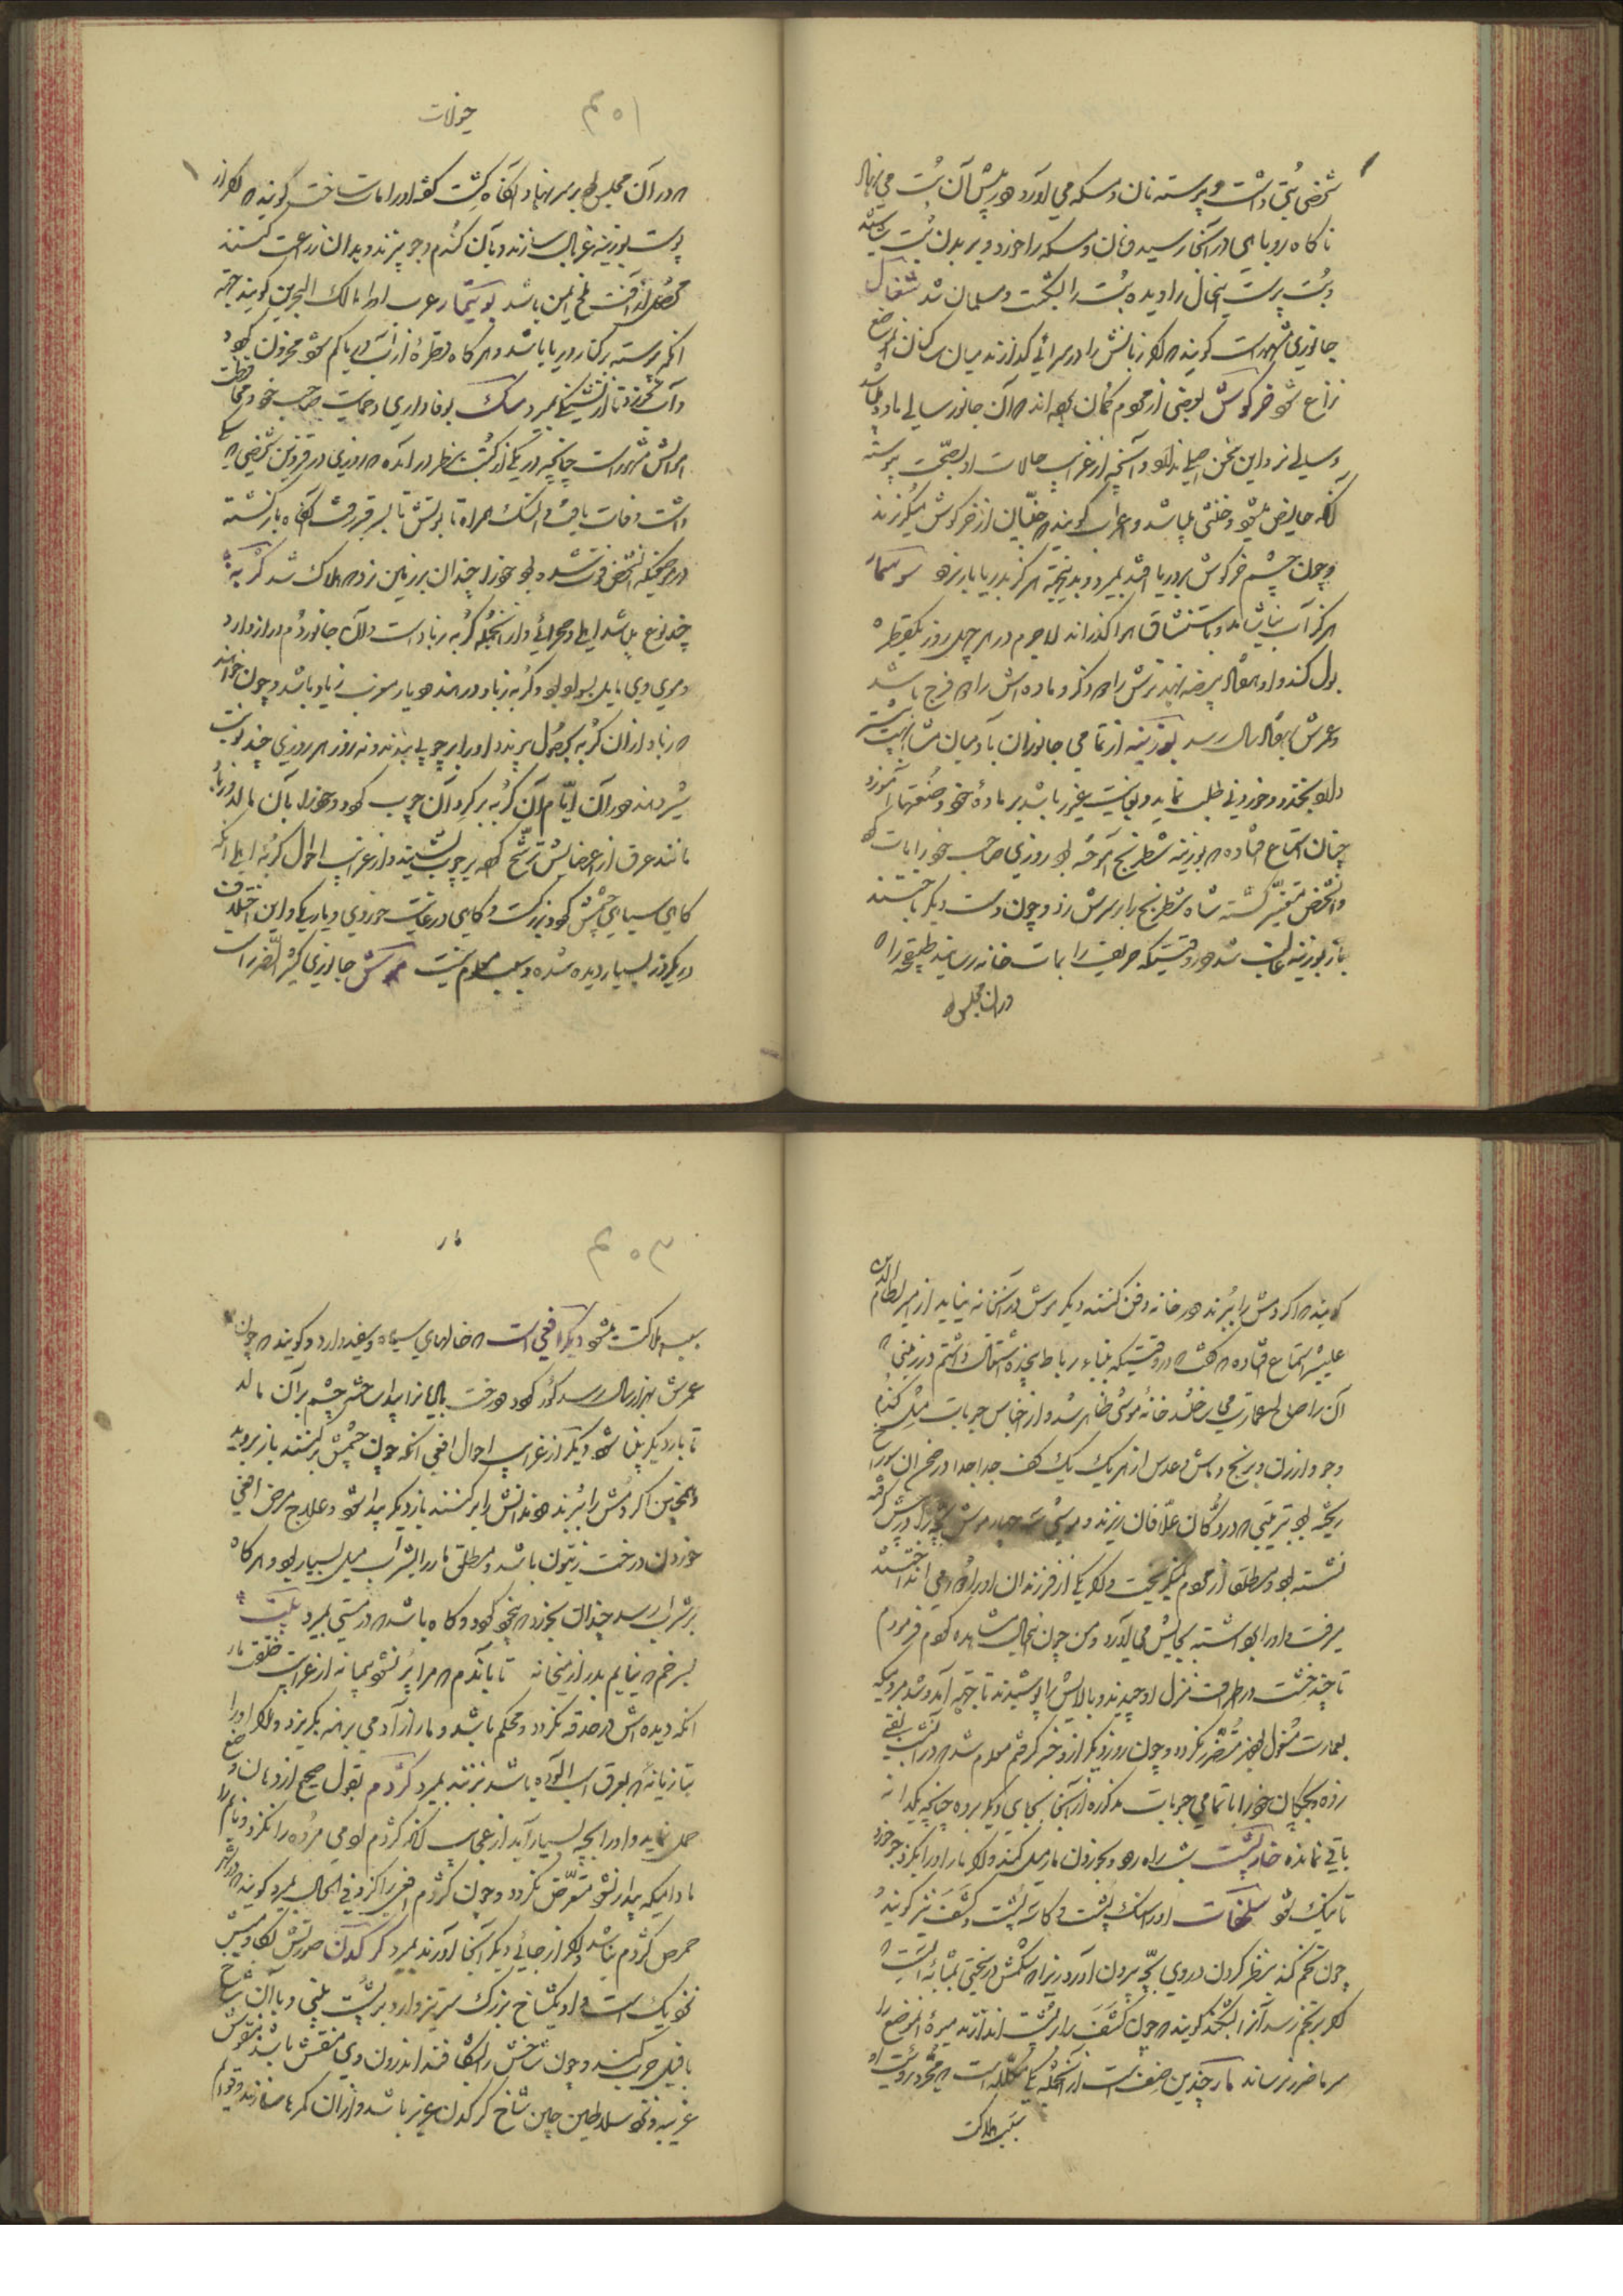 شخصی بتی داشت و پیوسته نان و مسکه می آورد و در پیش آن بت می نهاد
ناگاه روباهی در آنجا رسید و نان و مسکه را خورد و بر بدن بت
و بت پرست اینحال را دیده بت را بشکست و مسلمان شد شغال
جانوری مشهور است گویند که اگر زبانش را در سرائی گذارند میان ساکنان آن موضع
نزاع شود خرگوش بعضی از مردم گمان برده اند که آن جانور سالی ماده باشد
و سالی نر و این سخن اصلی ندارد و آنچه از غرایب حالات او بصحت پیوسته
آنکه حایض میشود و خنثی میباشد و اعراب گویند که جنیان از خرگوش میگریزند
و چون چشم خرگوش بر دریا افتد بمیرد و بدینجهة هرگز بدریا بار نرود سوسمار
هرگز آب نیاشامد و باستنشاق هوا گذراند لاجرم در هر چهل روز یکقطره
بول کند و او هفتاد بیضه نهد نرش را دو ذکر و ماده اش را دو فرج باشد
و عمرش بهفتصد سال رسد بوزینه از تمامی جانوران بآدمیان مشابهت بیشتر
دارد بخندد و خوردنی طلب نماید و بغایت غیور باشد بر مادهٔ خود و صنعتها آموزد
چنان استماع افتاده که بوزینه شطرنج آموخته بود روزی صاحب خود را مات
و آنشخص متغیر گشته شاه شطرنج را بر سرش زد و چون دست دیگر باختند
باز بوزینه غالب شد و در وقتیکه حریف را بمات خانه رسانید طبقچه را که
در آن مجلس بود
حیوانات
۴۵۱
که در آن مجلس بود بر سر نهاد و آنگاه کشت گفته او را مات ساخت گویند که اگر از
پوست بوزینه غربال سازند و بآن گندم و جو بیزند و بدان زراعت کنند
محصول از آفت ملخ ایمن باشد بوتیمار عرب او را مالک الحزین گویند جهة
آنکه پیوسته بر کنار دریا باشد و هر گاه قطرهٔ از آب دریا کم شود محزون گردد
و آب نخورد تا از تشنگی بمیرد سگ بوفاداری و حمایت صاحب خود و محافظت
اموالش مشهور است چنانچه در یکی از کتب بنظر در آمده که روزی در قزوین شخصی که سگی
داشت وفات یافت و آن سگ همراه تابوتش تا بسر قبر رفت آنگاه بازگشته
در موضعیکه آنشخص فوت شده بود خود را چندان بر زمین زد که هلاک شد گربه
چند نوع میباشد اهلی و صحرائی و از آنجمله گربه زباد است و آن جانور دم دراز دارد
و موی وی مایل بسواد بود و گربه زباد در هند و دیار مغرب زیاد باشد و چون خواهند
که زباد از آن گربه بحصول پیوندد او را بر چوبی بندند و نه روز هر روزی چند نوبت
شیر دهند و در آن ایام آن گربه بر گرد آن چوب گردد و خود را بآن مالد و زباد
مانند عرق از اعضایش ترشح کرده بر چوب نشیند و از غرایب احوال گربهٔ اهلی آنکه
گاهی سیاهی چشمش گرد و بزرگست و گاهی در غایت خوردی و باریکی و این اختلاف
در یکروز بسیار دیده شده و سبب معلوم نیست موش جانوری کثیر الضرر است
گویند که اگر دمش را ببرند و در خانه دفن کنند دیگر موش در آنخانه نیاید از امیر نظام الدین
علیشیر استماع افتاده که گفت که در وقتیکه ببناء رباط سنجذه اشتغال داشتم در زمینی که
آن را صالح عمارت می ساختند خانهٔ موشی ظاهر شد و از اجناس حبوبات مثل گندم
و جو و ارزن و برنج و ماش و عدس از هر یک یک کف جدا جدا در صحن آن سوراخ
ریخته بود بترتیبی که در دکان علافان ریزند و موشی سه چهار موش بچه را در پیش گرفته
نشسته بود و مطلقا از مردم نمیگریخت و اگر یکی از فرزندان او را دور می انداختند
میرفت و او را برداشته بجایش می آورد و من چون اینحال مشاهده کردم فرمودم
تا چند خشت در اطراف منزل او چیدند و بالایش را پوشیدند تا بجهة آمد و شد مردمیکه
بعمارت مشغول بودند متضرر نگردد و چون روز دیگر از وی خبر گرفتم معلوم شد که در آنشب نقبی
زده بچگان خود را با تمامی حبوبات مذکوره از آنجا بجای دیگر برده چنانچه یکدانه
باقی نمانده خارپشت شب راه رود و بخوردن مار میل کند و اگر مار او را بگزد چیزی خورد
تا نیک شود سلحفات او را سنگ پشت و کاسه پشت و کشف نیز گویند
چون تخم کند بنظر کردن در وی بچه بیرون آورد زیرا که شکمش در سختی بمثابهٔ ایست که
اگر بر تخم رسد آن را بشکند گویند که چون کشف را بر پشت اندازند میوهٔ آن موضع را
سرما ضرر نرساند مار چندین صنف است از آنجمله یکی مکلله است که مجرد رویت او
سبب هلاکت
مار
۴۵۳
سبب هلاکت میشود دیگر افعی است که خالهای سیاه و سفید دارد و گویند که چون
عمرش بهزار سال رسد کور گردد و درخت بالیانرا پیدا ساخته چشم بر آن مالد
تا بار دیگر بینا شود دیگر از غرایب احوال افعی آنکه چون چشمش بر کنند باز بروید
و همچنین اگر دمش را ببرند و دندانش را بر کنند باز دیگر پیدا شود و علاج مرض افعی
خوردن درخت زیتون باشد و مطلق مار را بشراب میل بسیار بود و هر گاه
بر شراب رسد چندان بخورد که بیخود گردد و گاه باشد که در مستی بمیرد
بسر خم که نیایم بدر از میخانه تا بآندم که مرا پر نشود پیمانه از غرایب خلقت مار
آنکه دیده اش در حدقه نگردد و محکم باشد و مار از آدمی برهنه بگریزد و اگر او را
بتازیانهٔ که بعرق اسب آلوده باشد بزنند بمیرد کژدم بقول صحیح از دهان وضع
حمل نماید و او را بچه بسیار آید از عجایب آنکه کژدم بومی مرده را نگزد و نایم را
مادامیکه بیدار نشود متعرض نگردد و چون کژدم افعی را گزد فی الحال بمیرد گویند که در شهر
حمص کژدم نباشد و اگر از جائی دیگر آنجا آورند بمیرد کرگدن صورتش بگاومیش
نزدیک است و او یکشاخ بزرگ سر تیز دارد بر پشت بینی و با آن شاخ
با فیل حرب کند و چون شاخش را بشکافند اندرون وی منقش باشد بنقوش
غریبه و نزد سلاطین چین شاخ کرگدن عزیز باشد و از آن کمرها سازند و قوایم